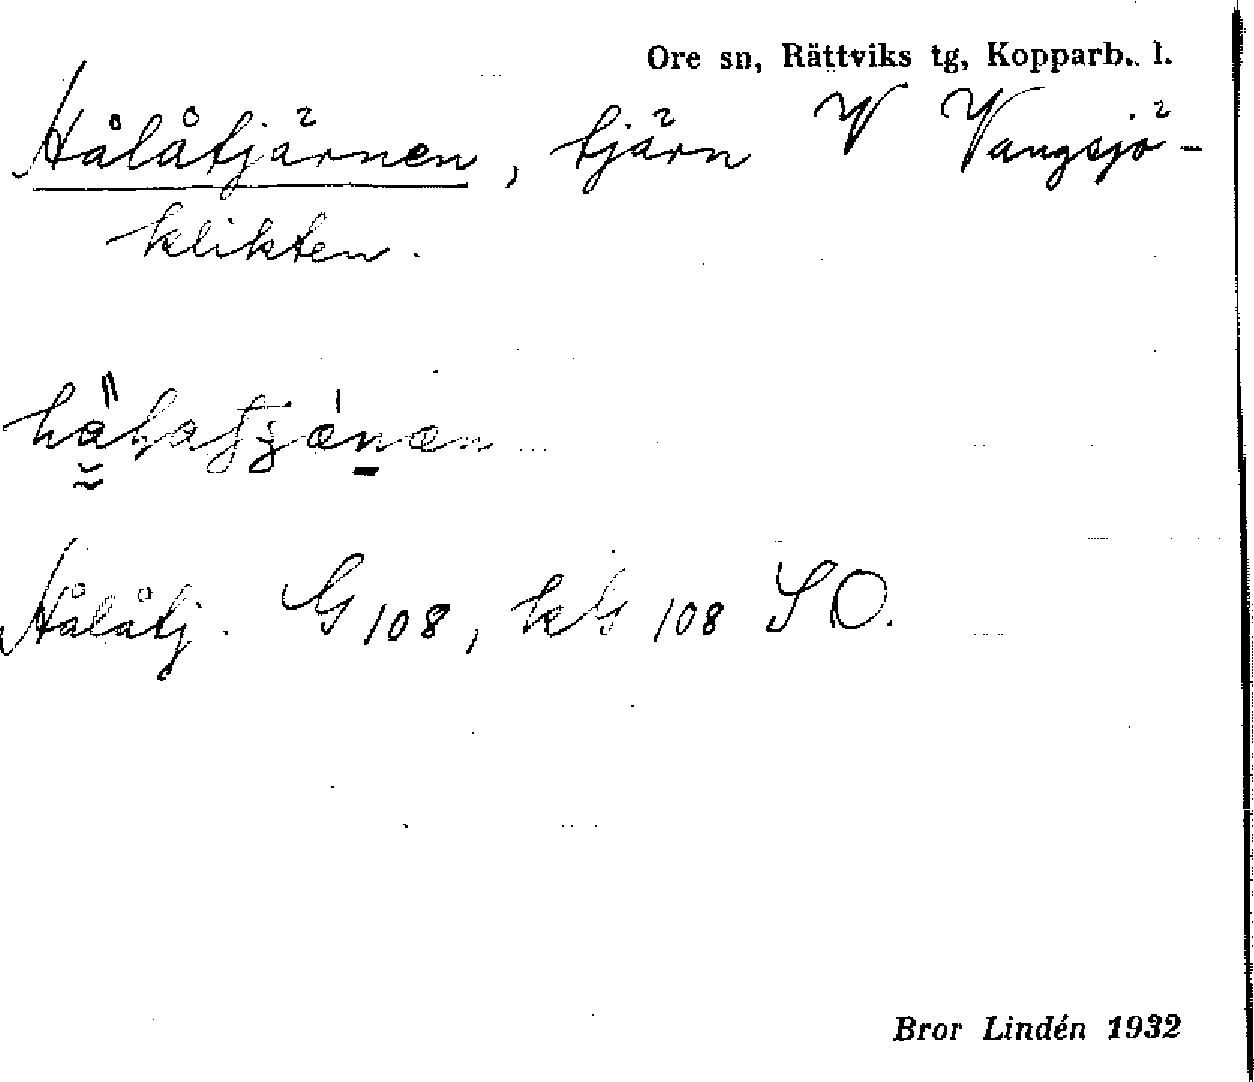 Ore sn, Rättviks tg, Kopparb. l.
Hålåtjärnen, tjärn V Vangsjö-
klikten.
Hålåtj. G 108, kG 108 SO.
Bror Lindén 1932